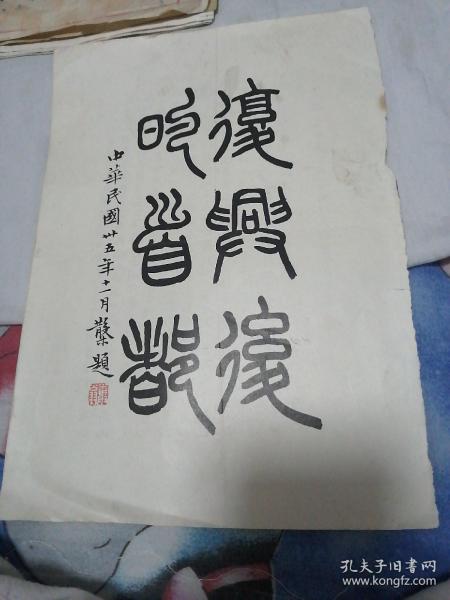 復興後
的首都
中華民國卅五年十一月 題
孔夫子旧书网
www.kongfz.com